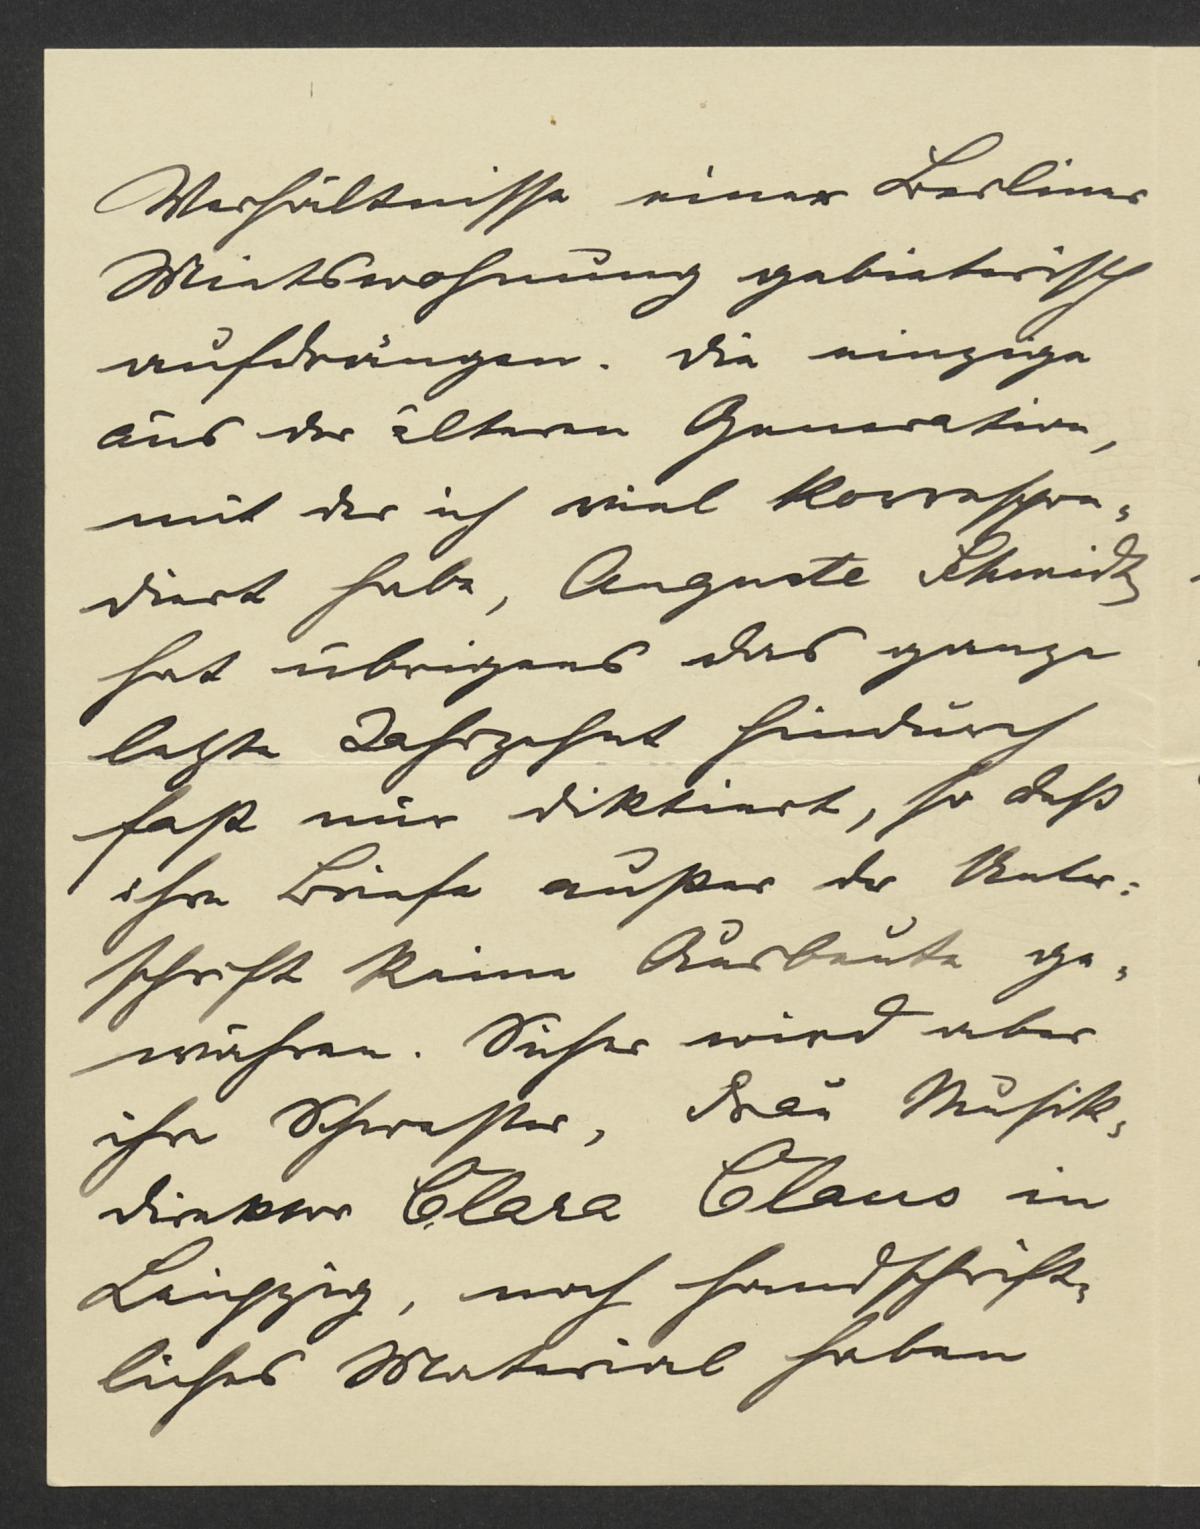 Verhältnisse einer Berliner
Mietswohnung gebieterisch
aufdrängen. Die einzige
aus der älteren Generation,
mit der ich viel korrespon-
diert habe, Auguste Schmidt
hat übrigens das ganze
letzte Jahrzehnt hindurch
fast nur diktiert, so daß
ihre Briefe außer der Unter-
schrift keine Ausbeute ge-
währen. Sicher wird aber
ihre Schwester, Frau Musik-
direktor Clara Claus in
Leipzig, noch handschrift-
liches Material haben